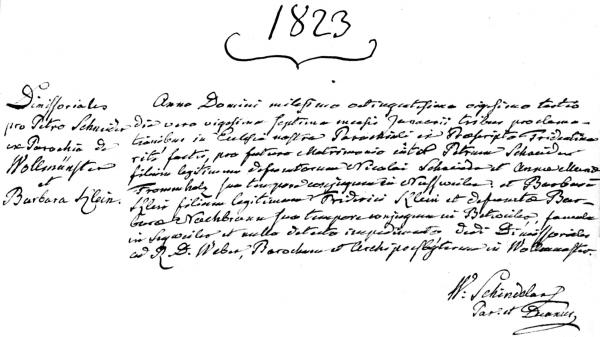 1823
Dimissoriales
pro Petro Schneider
ex Parochia de
Wollmünster
et
Barbara Klein.
Anno Domini milesimo octingentesimo vigesimo tertio
die vero vigesima septima mensis Januarii tribus proclama
tionibus in Ecclesia nostra Parochiali ex Praescripto Tridentino
rite factis, pro futuro Matrimonio inter Petrum Schneider
filium legitimum defunctorum Nicolai Schneider et Annae Mariae
Frommholz suo tempore conjugum in Nassweiler, et Barbaram
Klein filiam legitimam Friderici Klein et defunctae Bar
barae Nachbrunn suo tempore conjugum in famula
in et nullo detecto impedimento dedi Dimissoriales
ad R. D. Weber, Parochum et Archipresbyterum in Wollmunster.
W. Schindelar
Par. et Decanus